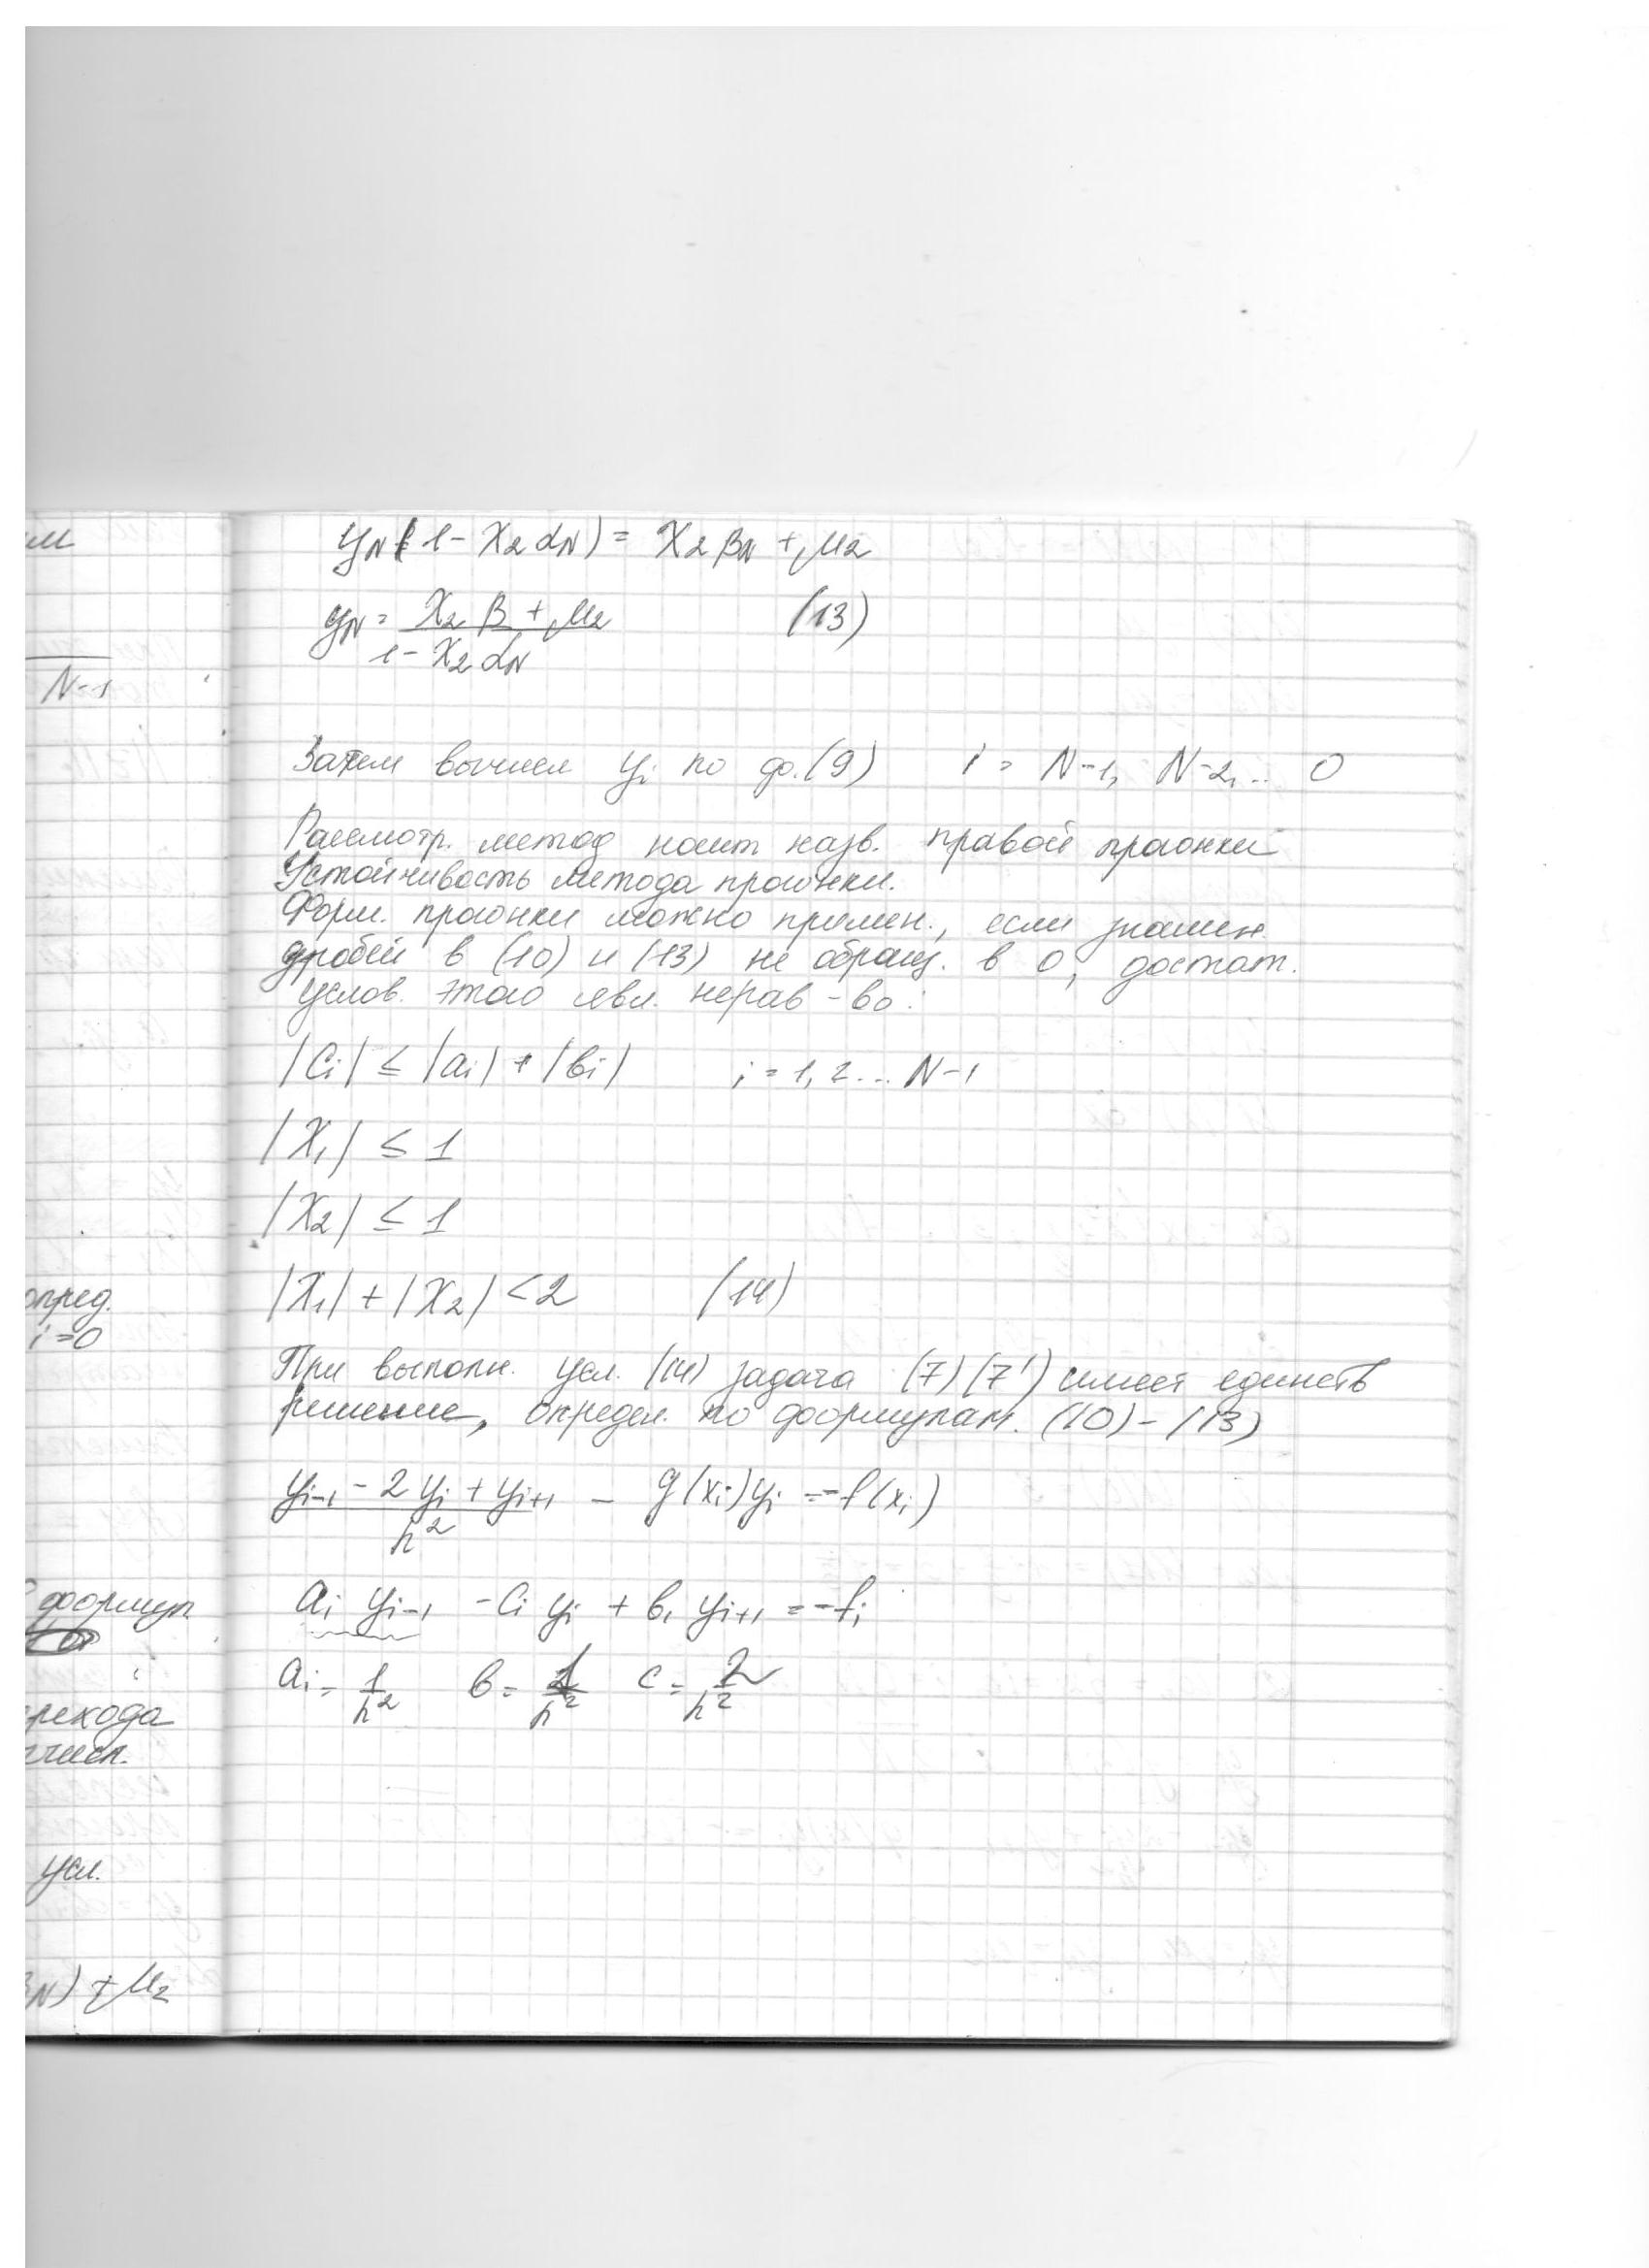 м
N-1
опред.
i=0
формул
рехода
числ.
усл.
βN) + μ2
yN(1 - X2 αN) = X2 βN + μ2
yN = (X2 β + μ2) / (1 - X2 αN) (13)
Затем вычисл yi по ф.(9) i = N-1, N-2, .. 0
Рассмотр. метод носит назв. правой прогонки
Устойчивость метода прогонки.
Форм. прогонки можно примен., если знамен.
дробей в (10) и (13) не обращ. в 0, достат.
услов. этого явл. нерав-во:
|Ci| ≤ |ai| + |bi| i = 1, 2 ... N-1
|X1| ≤ 1
|X2| ≤ 1
|X1| + |X2| < 2 (14)
При выполн. усл. (14) задача (7) (7') имеет единств
решение, определ. по формулам. (10) - (13)
(yi-1 - 2yi + yi+1) / h² - g(xi)yi = -f(xi)
ai yi-1 - Ci yi + bi yi+1 = -fi
ai = 1/h² b = 1/h² c = 2/h²